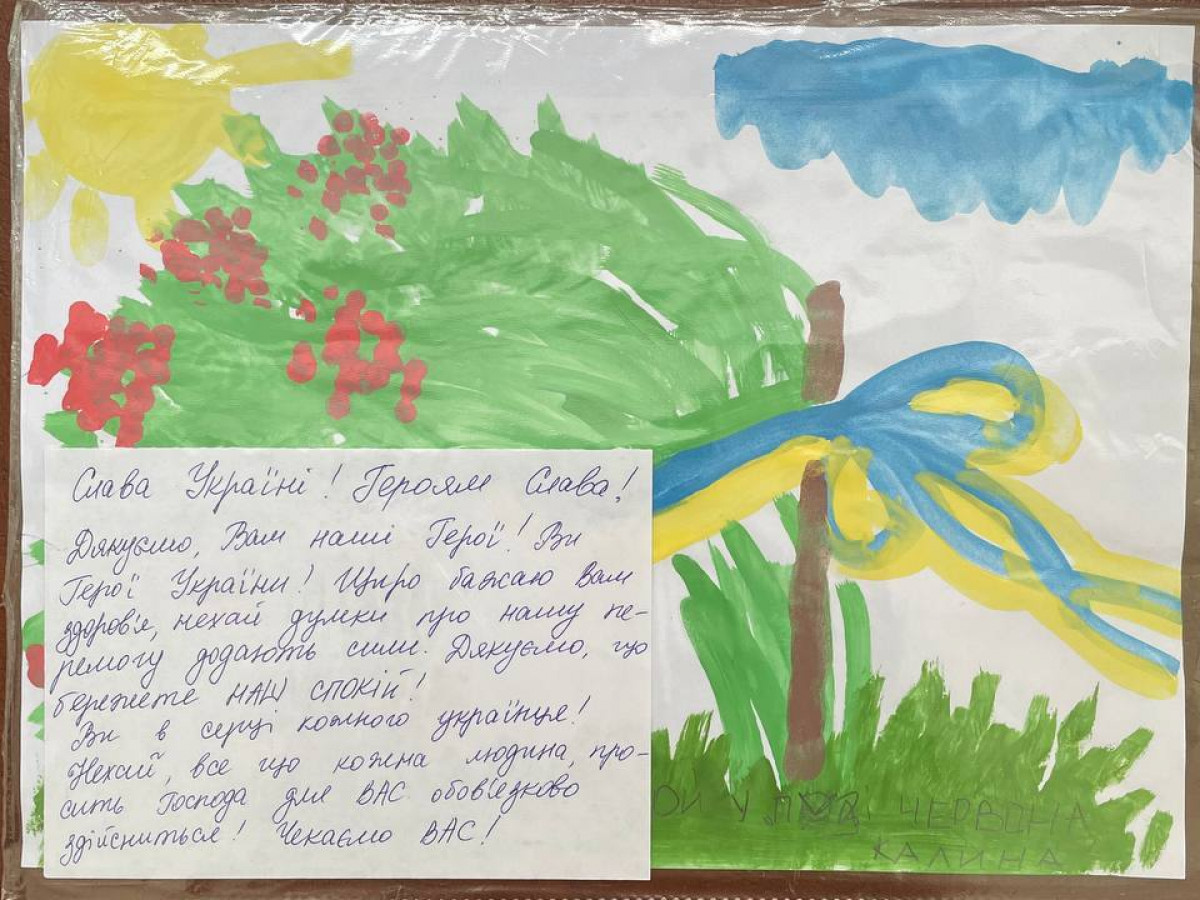 Слава Україні! Героям Слава!
Дякуємо, Вам наші Герої! Ви
Герої України! Щиро бажаю Вам
здоров'я, нехай думки про нашу пе-
ремогу додають сили. Дякуємо, що
бережете НАШ СПОКІЙ!
Ви в серці кожного українця!
Нехай, все що кожна людина, про-
сить Господа для ВАС обов'язково
здійсниться! Чекаємо ВАС!
ОЙ У ЧЕРВОНА
КАЛИНА